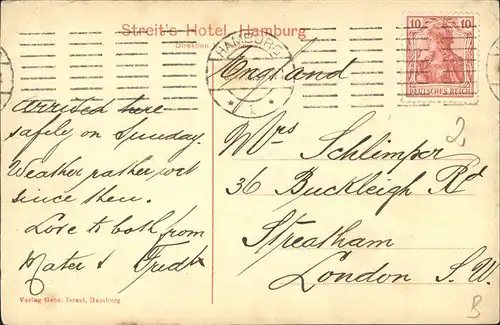 Streit's Hotel, Hamburg
Direktion
HAMBURG
* 1 *
10 10
DEUTSCHES REICH
England
arrived here
safely on Sunday.
Weather rather wet
since then.
Love to both from
Mater & Fred
Mrs Schlimper
36 Buckleigh Rd
Streatham
London S.W.
2
B
Verlag Gebr. Israel, Hamburg